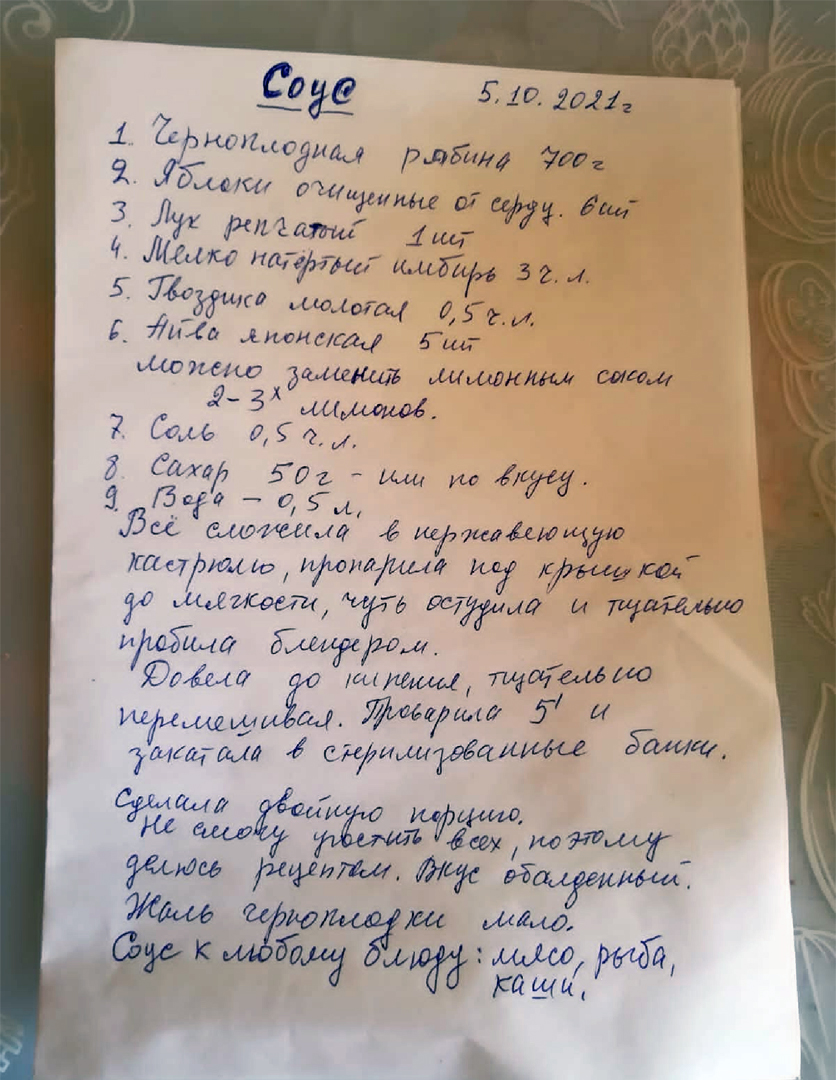 Соус 5.10.2021г
1. Черноплодная рябина 700г
2. Яблоки очищенные от серду. 6шт
3. Лук репчатый 1шт
4. Мелко натёртый имбирь 3ч.л.
5. Гвоздика молотая 0,5ч.л.
6. Айва японская 5шт
можно заменить лимонным соком
2-3х лимонов.
7. Соль 0,5ч.л.
8. Сахар 50г - или по вкусу.
9. Вода - 0,5л.
Всё сложила в нержавеющую
кастрюлю, пропарила под крышкой
до мягкости, чуть остудила и тщательно
пробила блендером.
Довела до кипения, тщательно
перемешивая. Проварила 5' и
закатала в стерилизованные банки.
Сделала двойную порцию.
Не смогу угостить всех, поэтому
делюсь рецептом. Вкус обалденный.
Жаль черноплодки мало.
Соус к любому блюду: мясо, рыба,
каши.